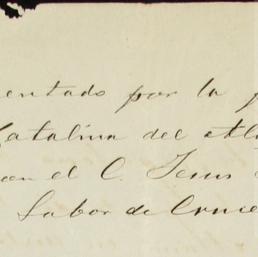 entado por la
Catalina del
con el C. Jesus
Labor de Cruce